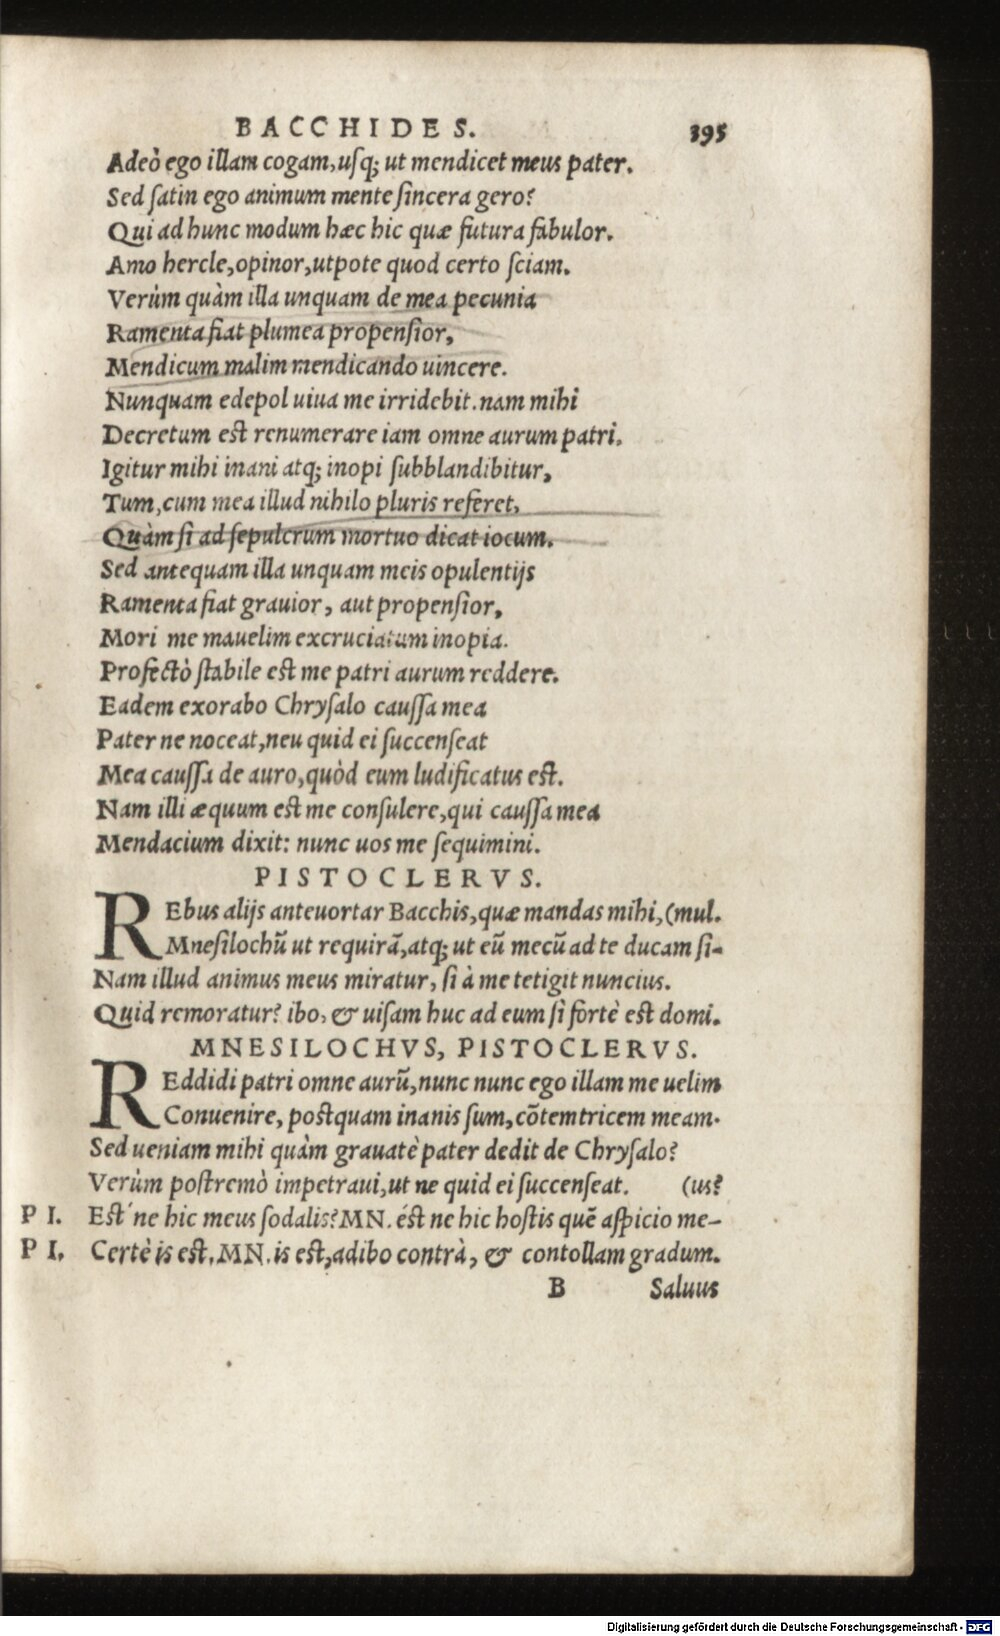 BACCHIDES. 395
Adeò ego illam cogam, uſq; ut mendicet meus pater.
Sed ſatin ego animum mente ſincera gero?
Qui ad hunc modum hæc hic quæ futura fabulor.
Amo hercle, opinor, utpote quod certo ſciam.
Verùm quàm illa unquam de mea pecunia
Ramenta fiat plumea propenſior,
Mendicum malim mendicando uincere.
Nunquam edepol uiua me irridebit. nam mihi
Decretum est renumerare iam omne aurum patri.
Igitur mihi inani atq; inopi ſubblandibitur,
Tum, cum mea illud nihilo pluris referet,
Quàm ſi ad ſepulcrum mortuo dicat iocum.
Sed antequam illa unquam meis opulentijs
Ramenta fiat grauior, aut propenſior,
Mori me mauelim excruciatum inopia.
Profectò ſtabile est me patri aurum reddere.
Eadem exorabo Chryſalo cauſſa mea
Pater ne noceat, neu quid ei ſuccenſeat
Mea cauſſa de auro, quòd eum ludificatus est.
Nam illi æquum est me conſulere, qui cauſſa mea
Mendacium dixit: nunc uos me ſequimini.
PISTOCLERVS.
REbus alijs anteuortar Bacchis, quæ mandas mihi, (mul.
Mneſilochū ut requirā, atq; ut eū mecū ad te ducam ſi-
Nam illud animus meus miratur, ſi à me tetigit nuncius.
Quid remoratur? ibo, & uiſam huc ad eum ſi fortè est domi.
MNESILOCHVS, PISTOCLERVS.
REddidi patri omne aurū, nunc nunc ego illam me uelim
Conuenire, postquam inanis ſum, cōtemtricem meam.
Sed ueniam mihi quàm grauatè pater dedit de Chryſalo?
Verùm postremò impetraui, ut ne quid ei ſuccenſeat. (us?
PI. Est´ne hic meus ſodalis? MN. ést ne hic hostis quē aſpicio me-
PI. Certè is est. MN. is est, adibo contrà, & contollam gradum.
B Saluus
Digitalisierung gefördert durch die Deutsche Forschungsgemeinschaft - DFG